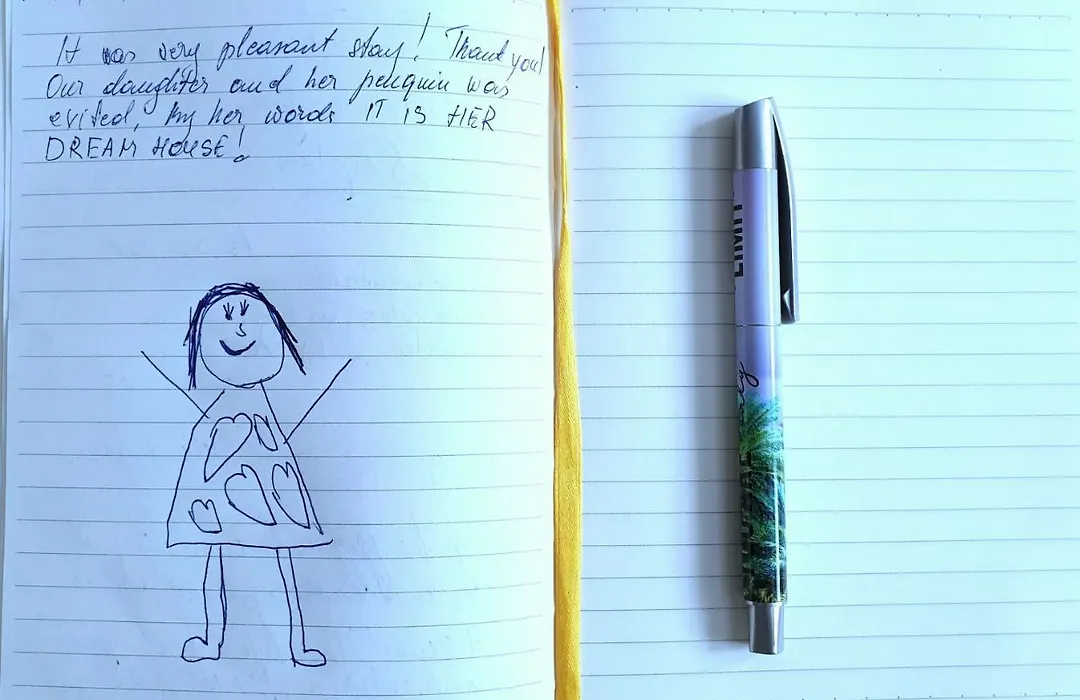 It was very pleasant stay! Thank you!
Our daughter and her penguin was
exited, by her words IT IS HER
DREAM HOUSE!
LIMIT